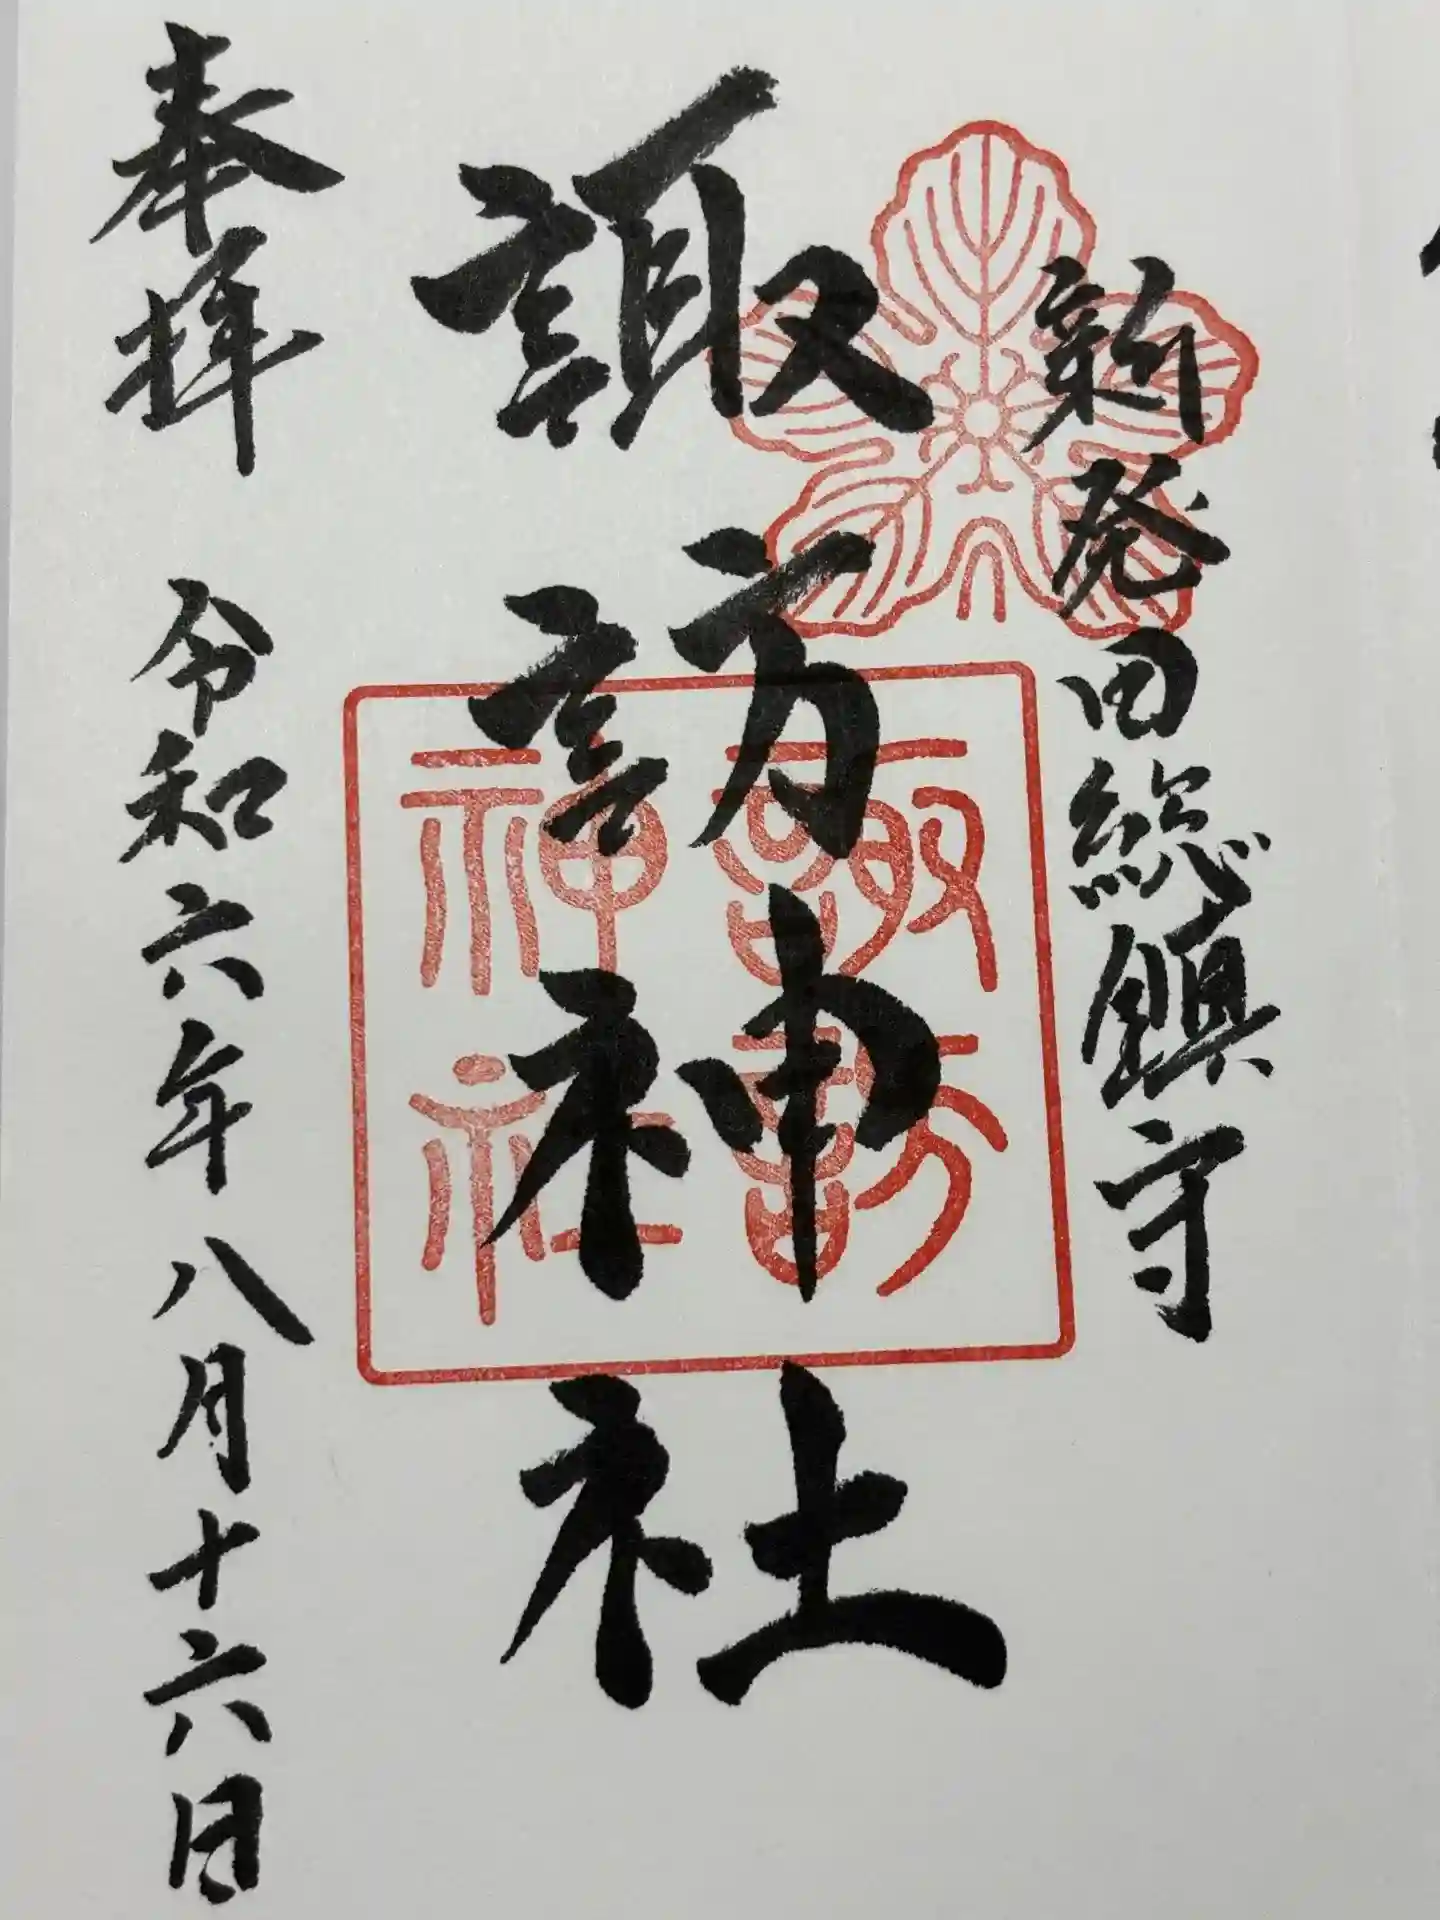 新発田総鎮守
諏訪神社
諏訪
神社
奉拝 令和六年八月十六日